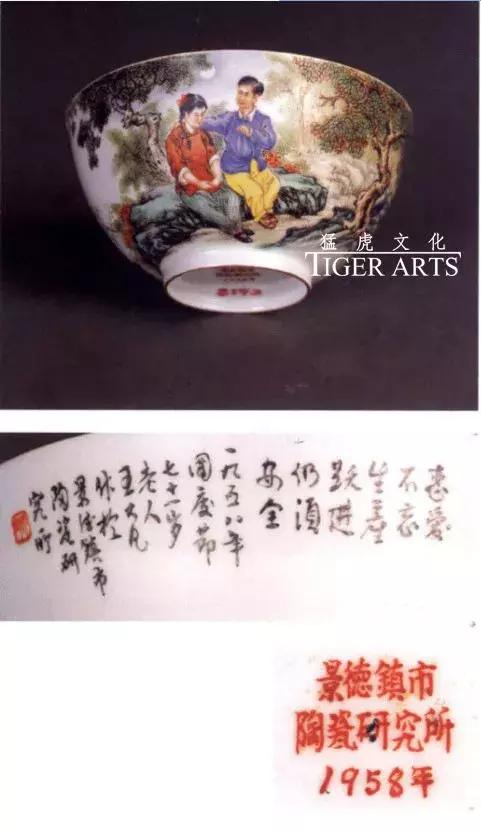 猛虎文化
TIGER ARTS
恋愛
不忘
生產
跃進
仍須
安全
一九五八年
國慶節
七十一岁
老人
王大凡
作於
景德鎮市
陶瓷研
究所
景德鎮市
陶瓷研究所
1958年